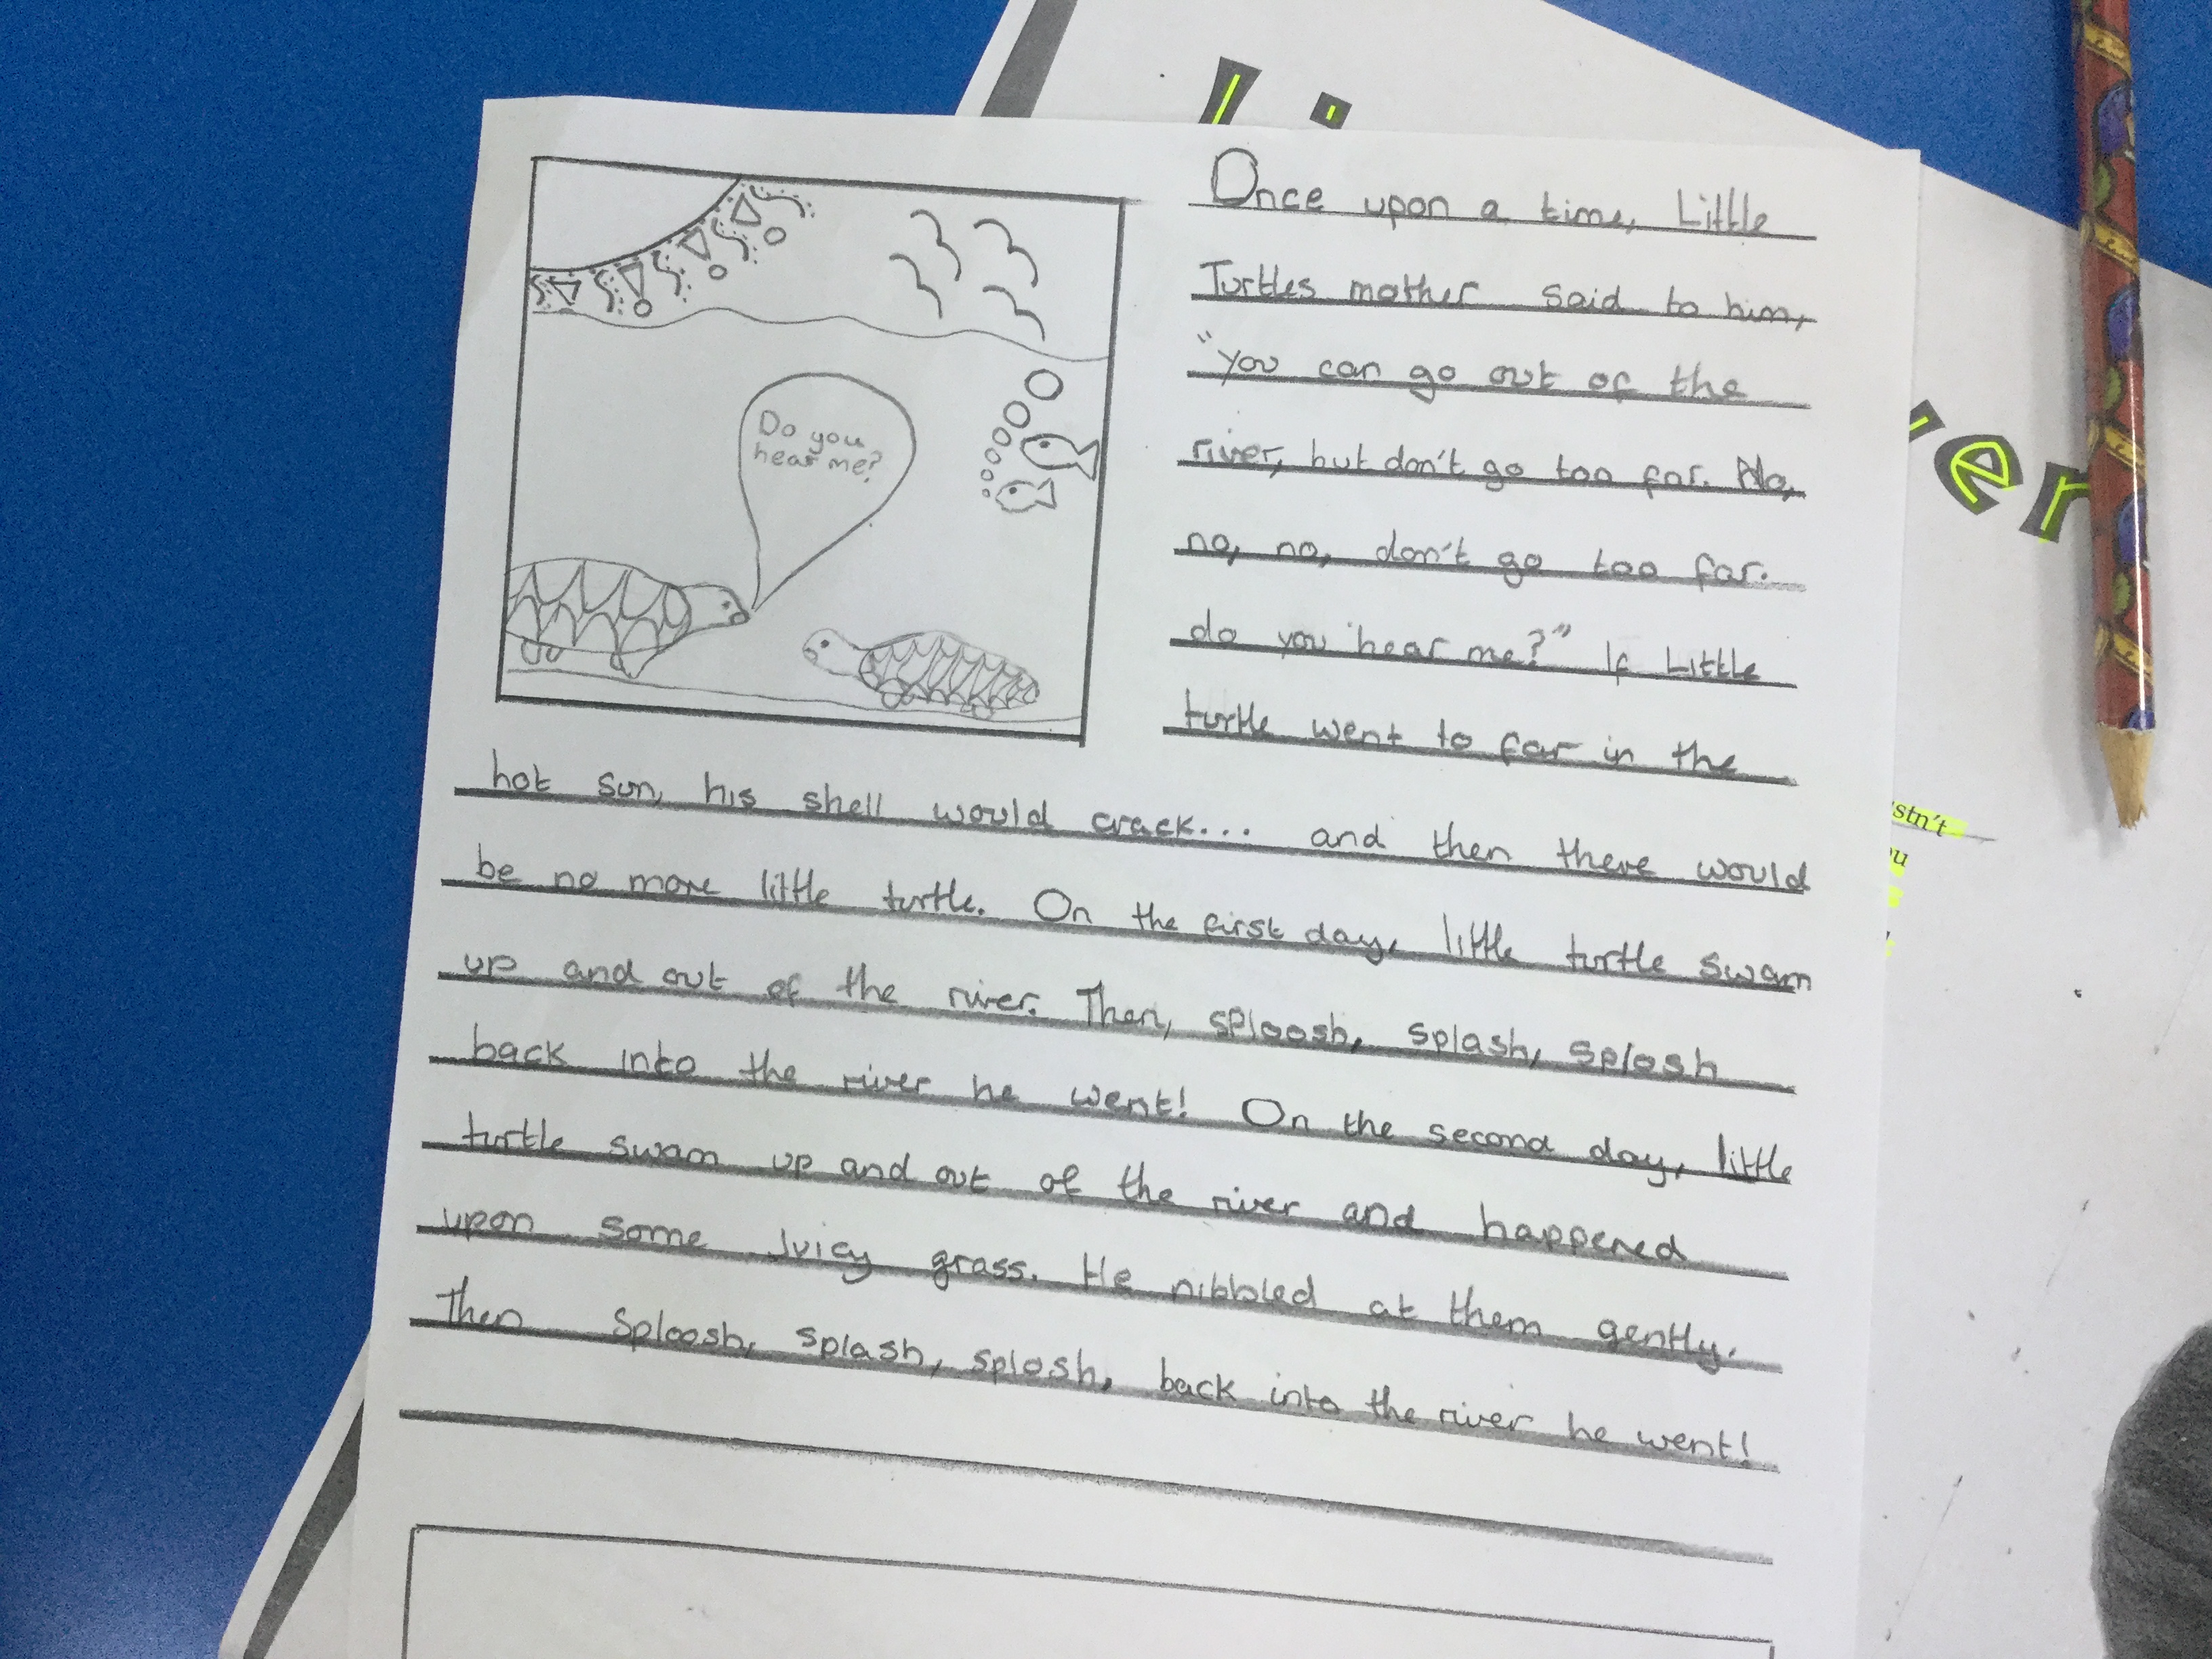 Do you
hear me?
Once upon a time, Little
Turtles mother said to him,
"you can go out of the
river, but don't go too far. No,
no, no, don't go too far.
do you hear me?" If Little
turtle went to far in the
hot sun, his shell would crack... and then there would
be no more little turtle. On the first day, little turtle swam
up and out of the river. Then, sploosh, splash, splosh
back into the river he went! On the second day, little
turtle swam up and out of the river and happened
upon some Juicy grass. He nibbled at them gently.
Then Sploosh, splash, splosh, back into the river he went!